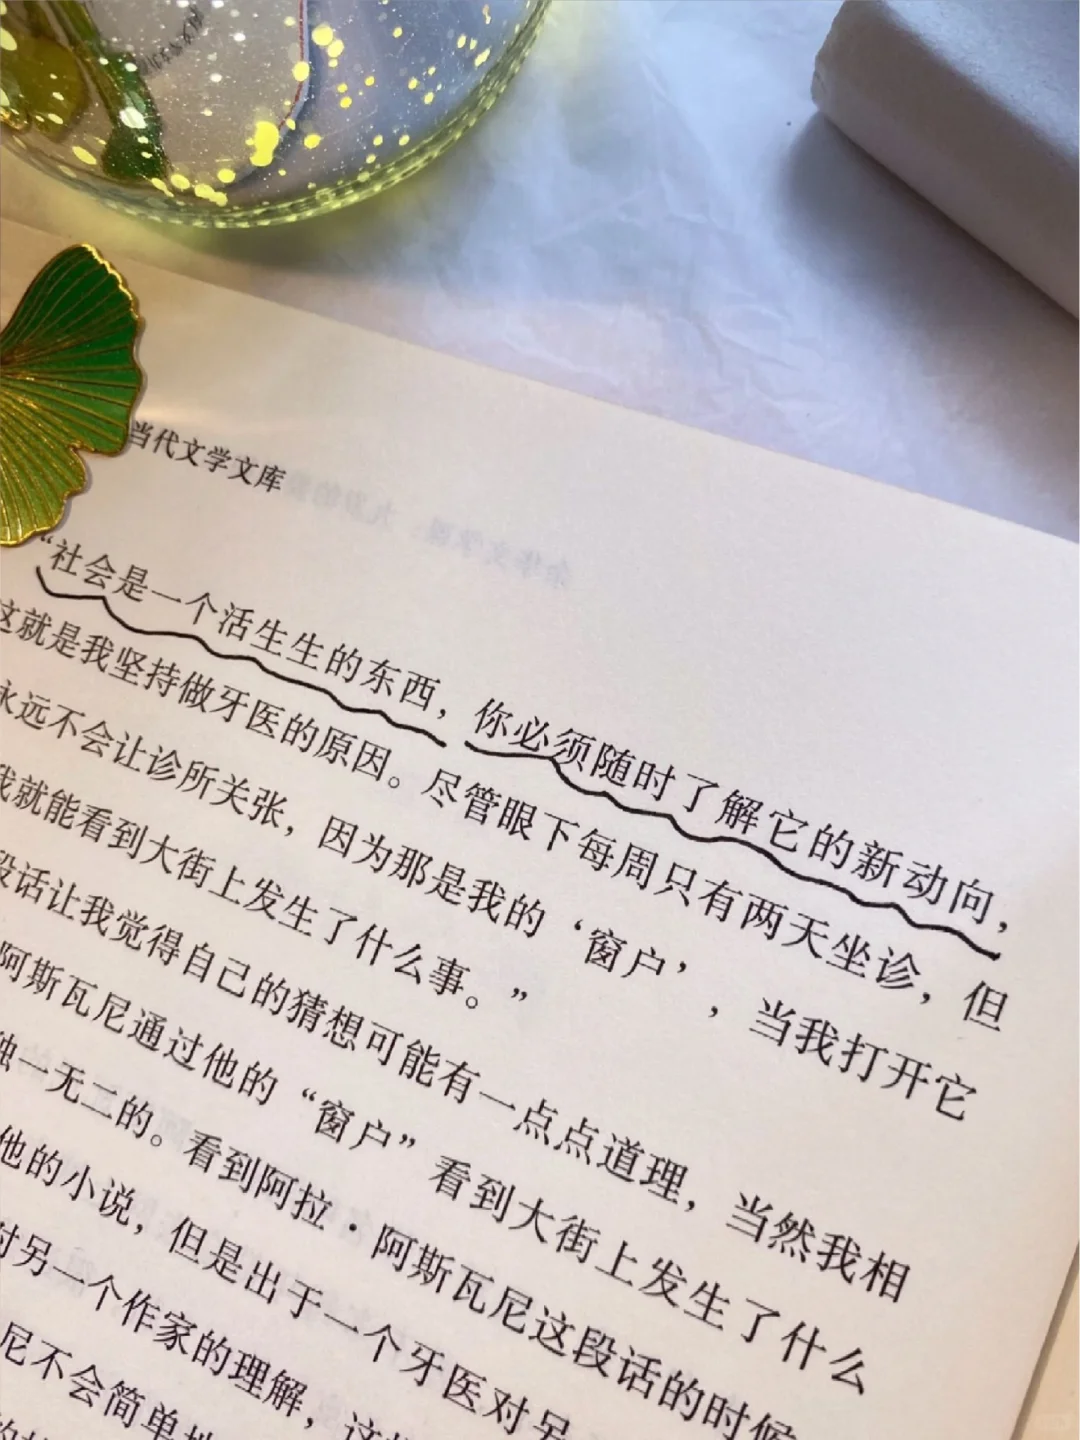 当代文学文库
“社会是一个活生生的东西，你必须随时了解它的新动向，
这就是我坚持做牙医的原因。尽管眼下每周只有两天坐诊，但
永远不会让诊所关张，因为那是我的‘窗户’，当我打开它
我就能看到大街上发生了什么事。”
段话让我觉得自己的猜想可能有一点点道理，当然我相
阿斯瓦尼通过他的“窗户”看到大街上发生了什么
独一无二的。看到阿拉·阿斯瓦尼这段话的时候
他的小说，但是出于一个牙医对另
对另一个作家的理解，这
尼不会简单地